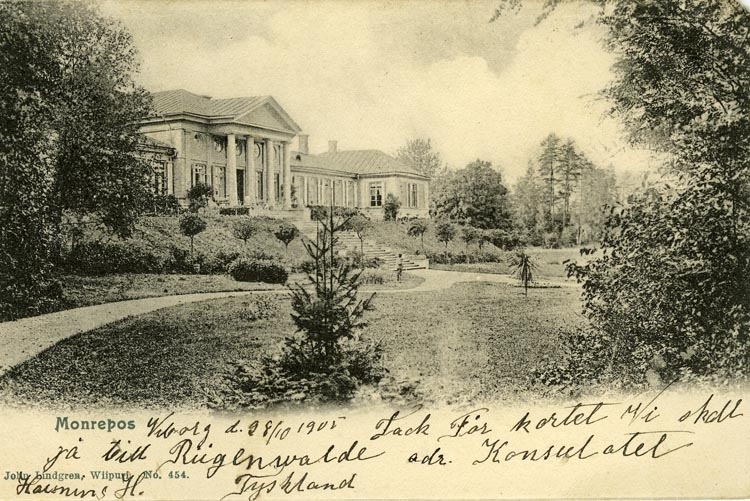 Monrepos Wiborg d. 28/10 1905 Tack För kortet Vi skall
på till Rügenwalde adr. Konsulatet
John Lindgren, Wiipuri. No. 454.
H. Tyskland